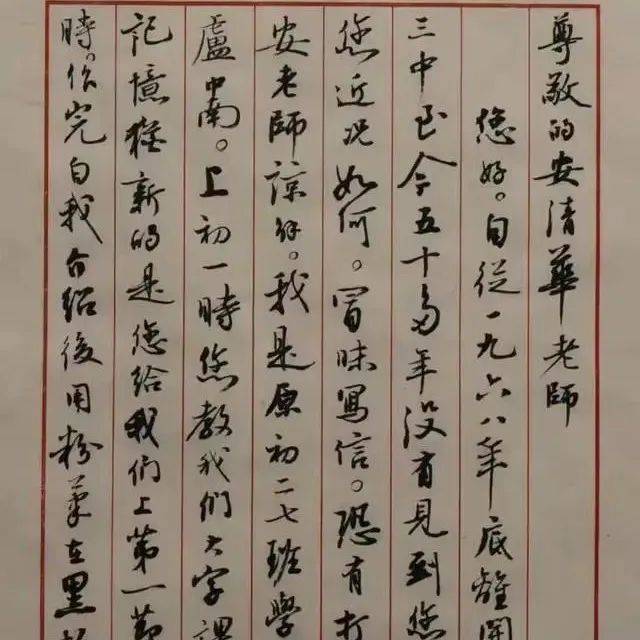 尊敬的安清華老師
您好。自從一九六八年底離開
三中至今五十多年没有見到您
您近况如何。冒昧寫信。恐有打
安老師諒解。我是原初二七班學
盧中南。上初一時您教我們大字課
記憶猶新的是您給我們上第一節
時。您完自我介紹後用粉筆在黑